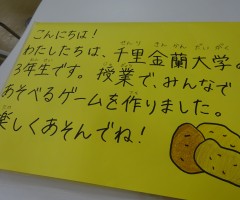 こんにちは!
わたしたちは、千里金蘭大学の
3年生です。授業で、みんなで
あそべるゲームを作りました。
楽しくあそんでね!